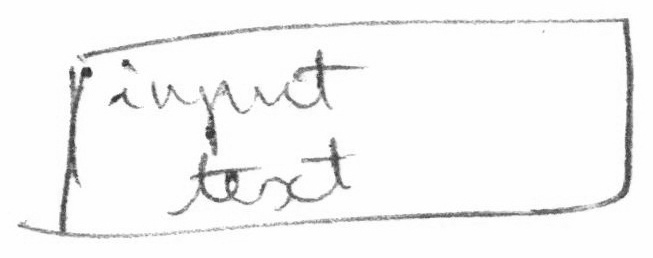 input
text